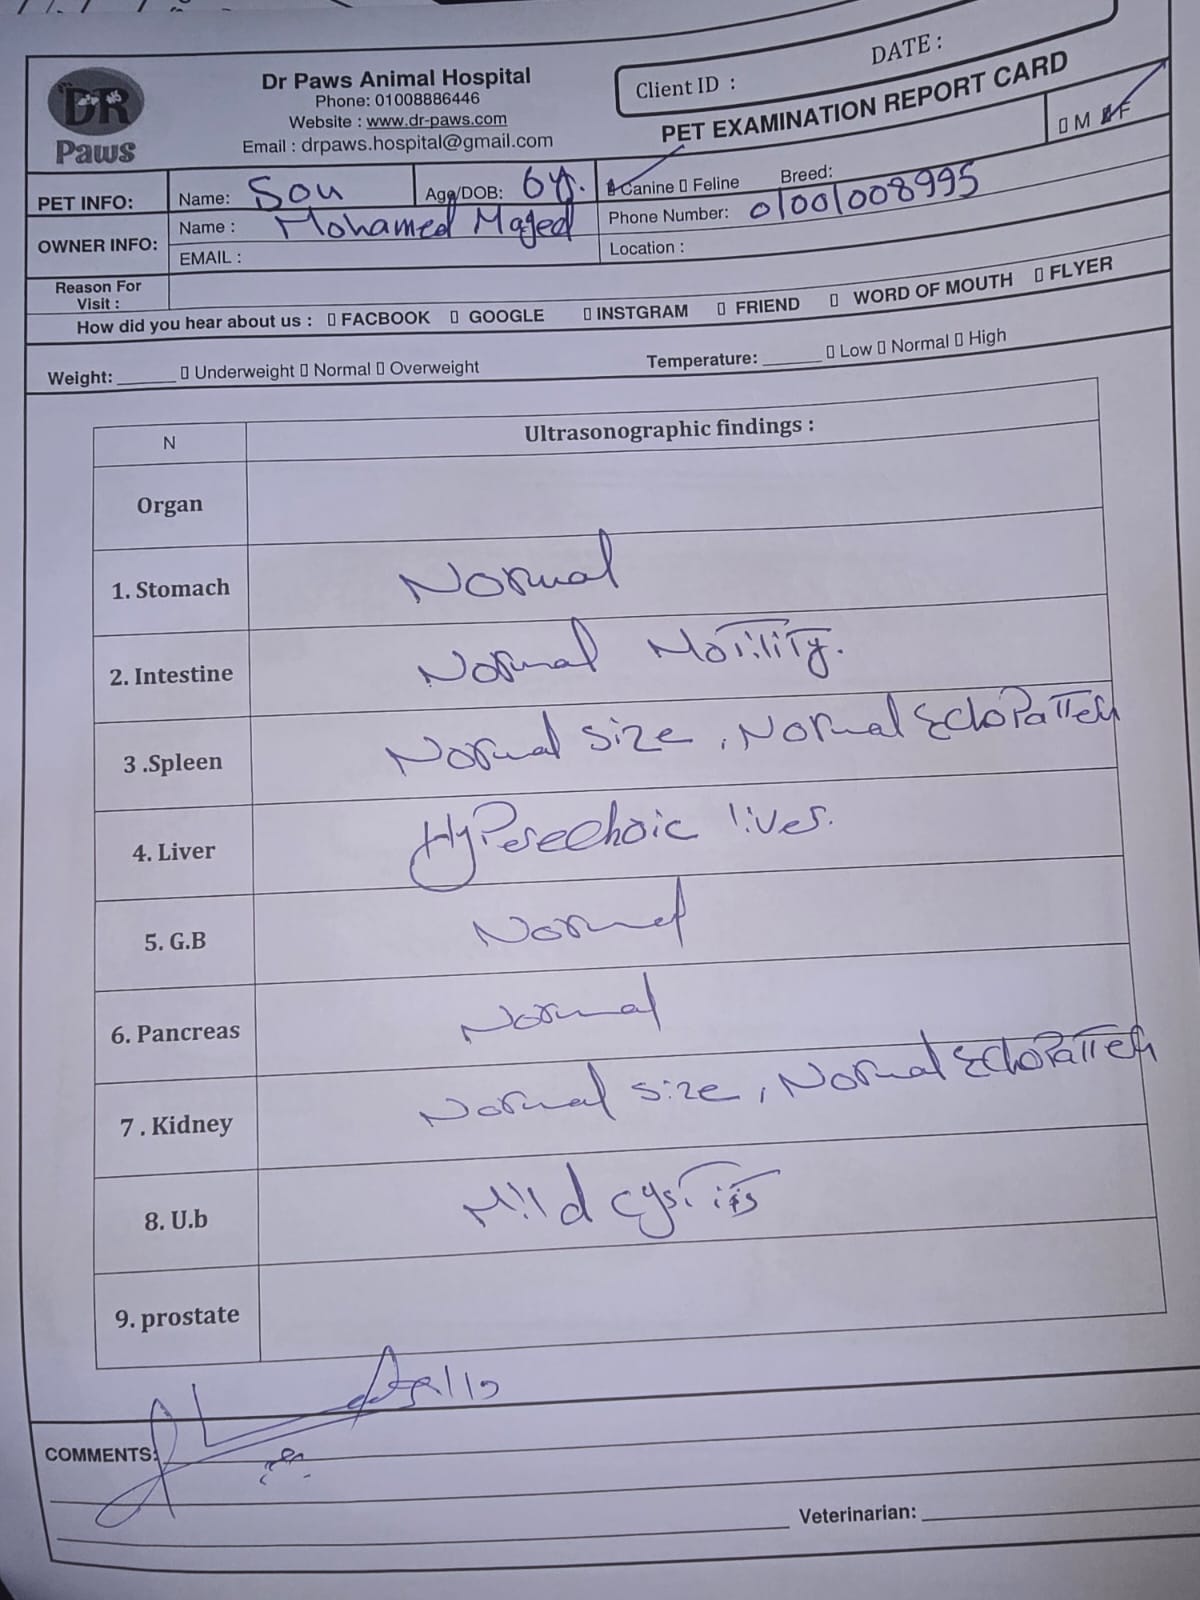 DR
Paws
Dr Paws Animal Hospital
Phone: 01008886446
Website : www.dr-paws.com
Email : drpaws.hospital@gmail.com
Client ID :
DATE :
PET EXAMINATION REPORT CARD
PET INFO:
Name: Sou
Age/DOB: 6y.
Canine Feline
Breed:
M F
OWNER INFO:
Name : Mohamed Maged
Phone Number: 01001008995
EMAIL :
Location :
Reason For
Visit :
How did you hear about us : FACBOOK GOOGLE INSTGRAM FRIEND WORD OF MOUTH FLYER
Weight: ______ Underweight Normal Overweight
Temperature: ______ Low Normal High
N
Ultrasonographic findings :
Organ
1. Stomach Normal
2. Intestine Normal Motility.
3 .Spleen Normal size, Normal EchoPattern
4. Liver Hyperechoic liver.
5. G.B Normal
6. Pancreas Normal
7 . Kidney Normal size, Normal EchoPattern
8. U.b Mild cystitis
9. prostate
COMMENTS:
Veterinarian: